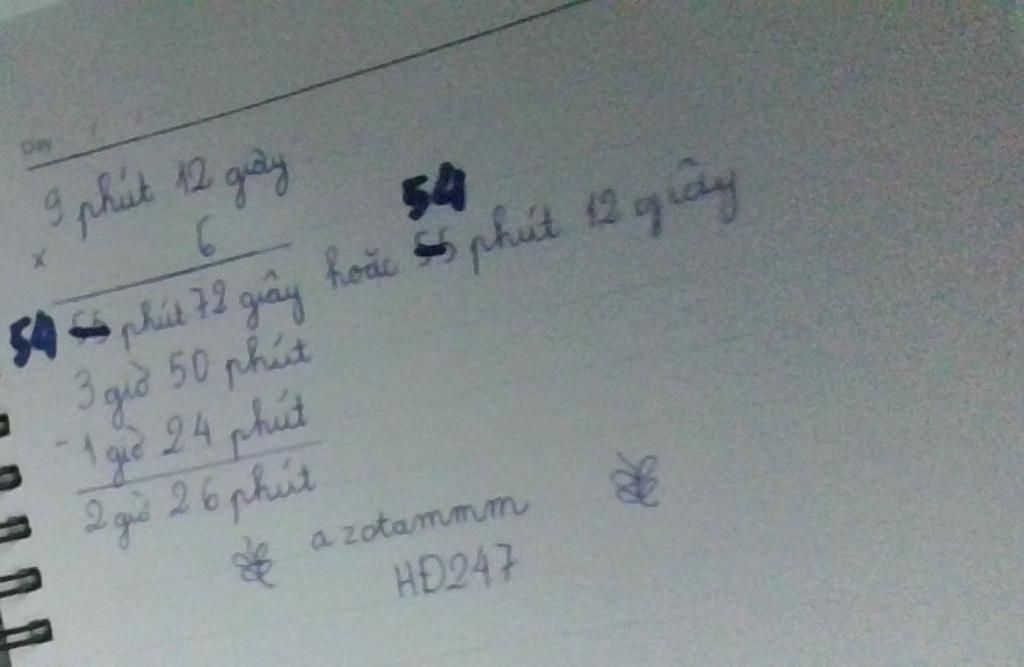 Day / /
9 phút 12 giây
x 6
54 55 phút 72 giây hoặc 54 55 phút 12 giây
3 giờ 50 phút
- 1 giờ 24 phút
2 giờ 26 phút
azotammm
HĐ247